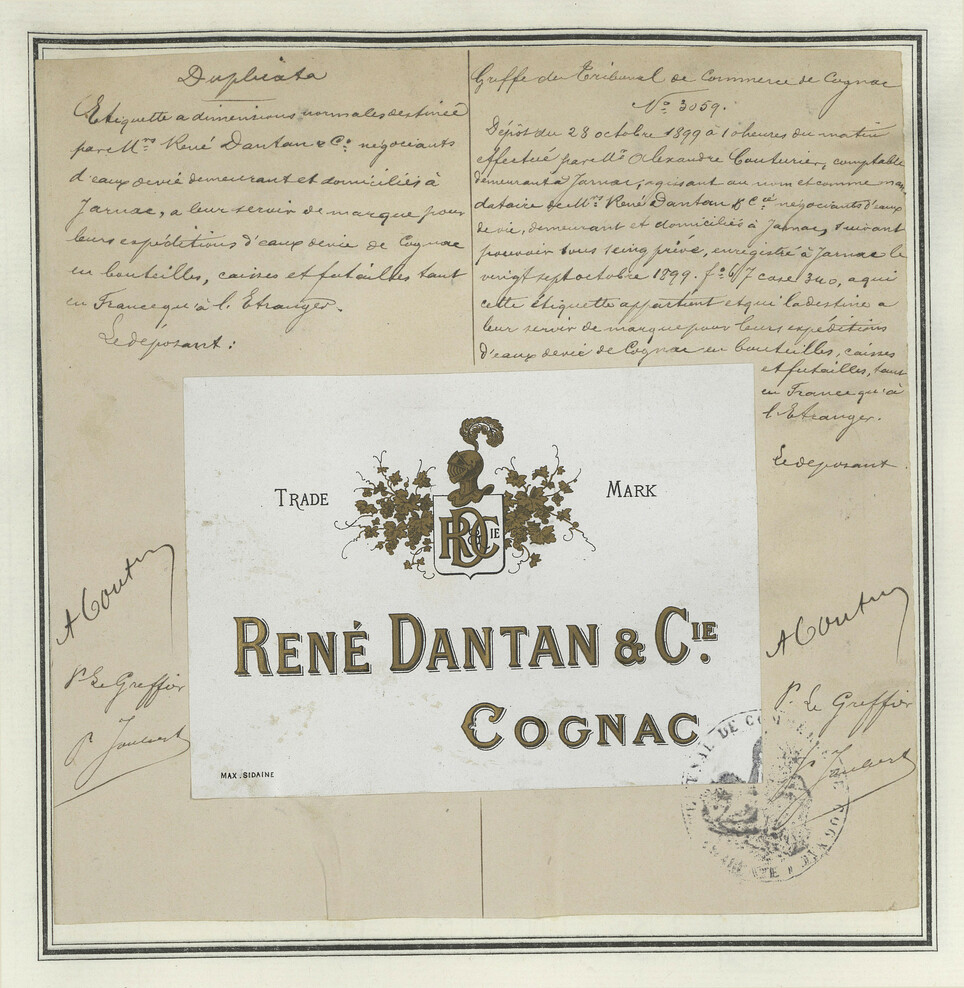 Duplicata
Etiquette a dimensions normales destinée
par Mrs René Dantan & Cie négociants
d'eaux de vie demeurant et domiciliés à
Jarnac, a leur servir de marque pour
leurs expéditions d'eaux de vie de Cognac
en bouteilles, caisses et futailles tant
en France qu'à l'Etranger.
Le déposant :
Greffe du Tribunal de Commerce de Cognac
No 3059.
Dépôt du 28 octobre 1899 à 10 heures du matin
effectué par Mr Alexandre Couturier, comptable
demeurant à Jarnac, agissant au nom et comme man
dataire de Mrs René Dantan & Cie négociants d'eaux
de vie, demeurant et domiciliés à Jarnac, suivant
pouvoir sous seing privé, enregistré à Jarnac le
vingt sept octobre 1899. fo 67 case 340, a qui
cette étiquette appartient et qui la destine a
leur servir de marque pour leurs expéditions
d'eaux de vie de Cognac en bouteilles, caisses
et futailles, tant
en France qu'à
l'Etranger.
Le déposant.
TRADE MARK
RD&CIE
RENÉ DANTAN & CIE.
COGNAC
MAX. SIDAINE
A Coutu
Pr Le Greffier
P. Joubert
A Coutu
Pr Le Greffier
P. Joubert
TRIBUNAL DE COMMERCE DE COGNAC